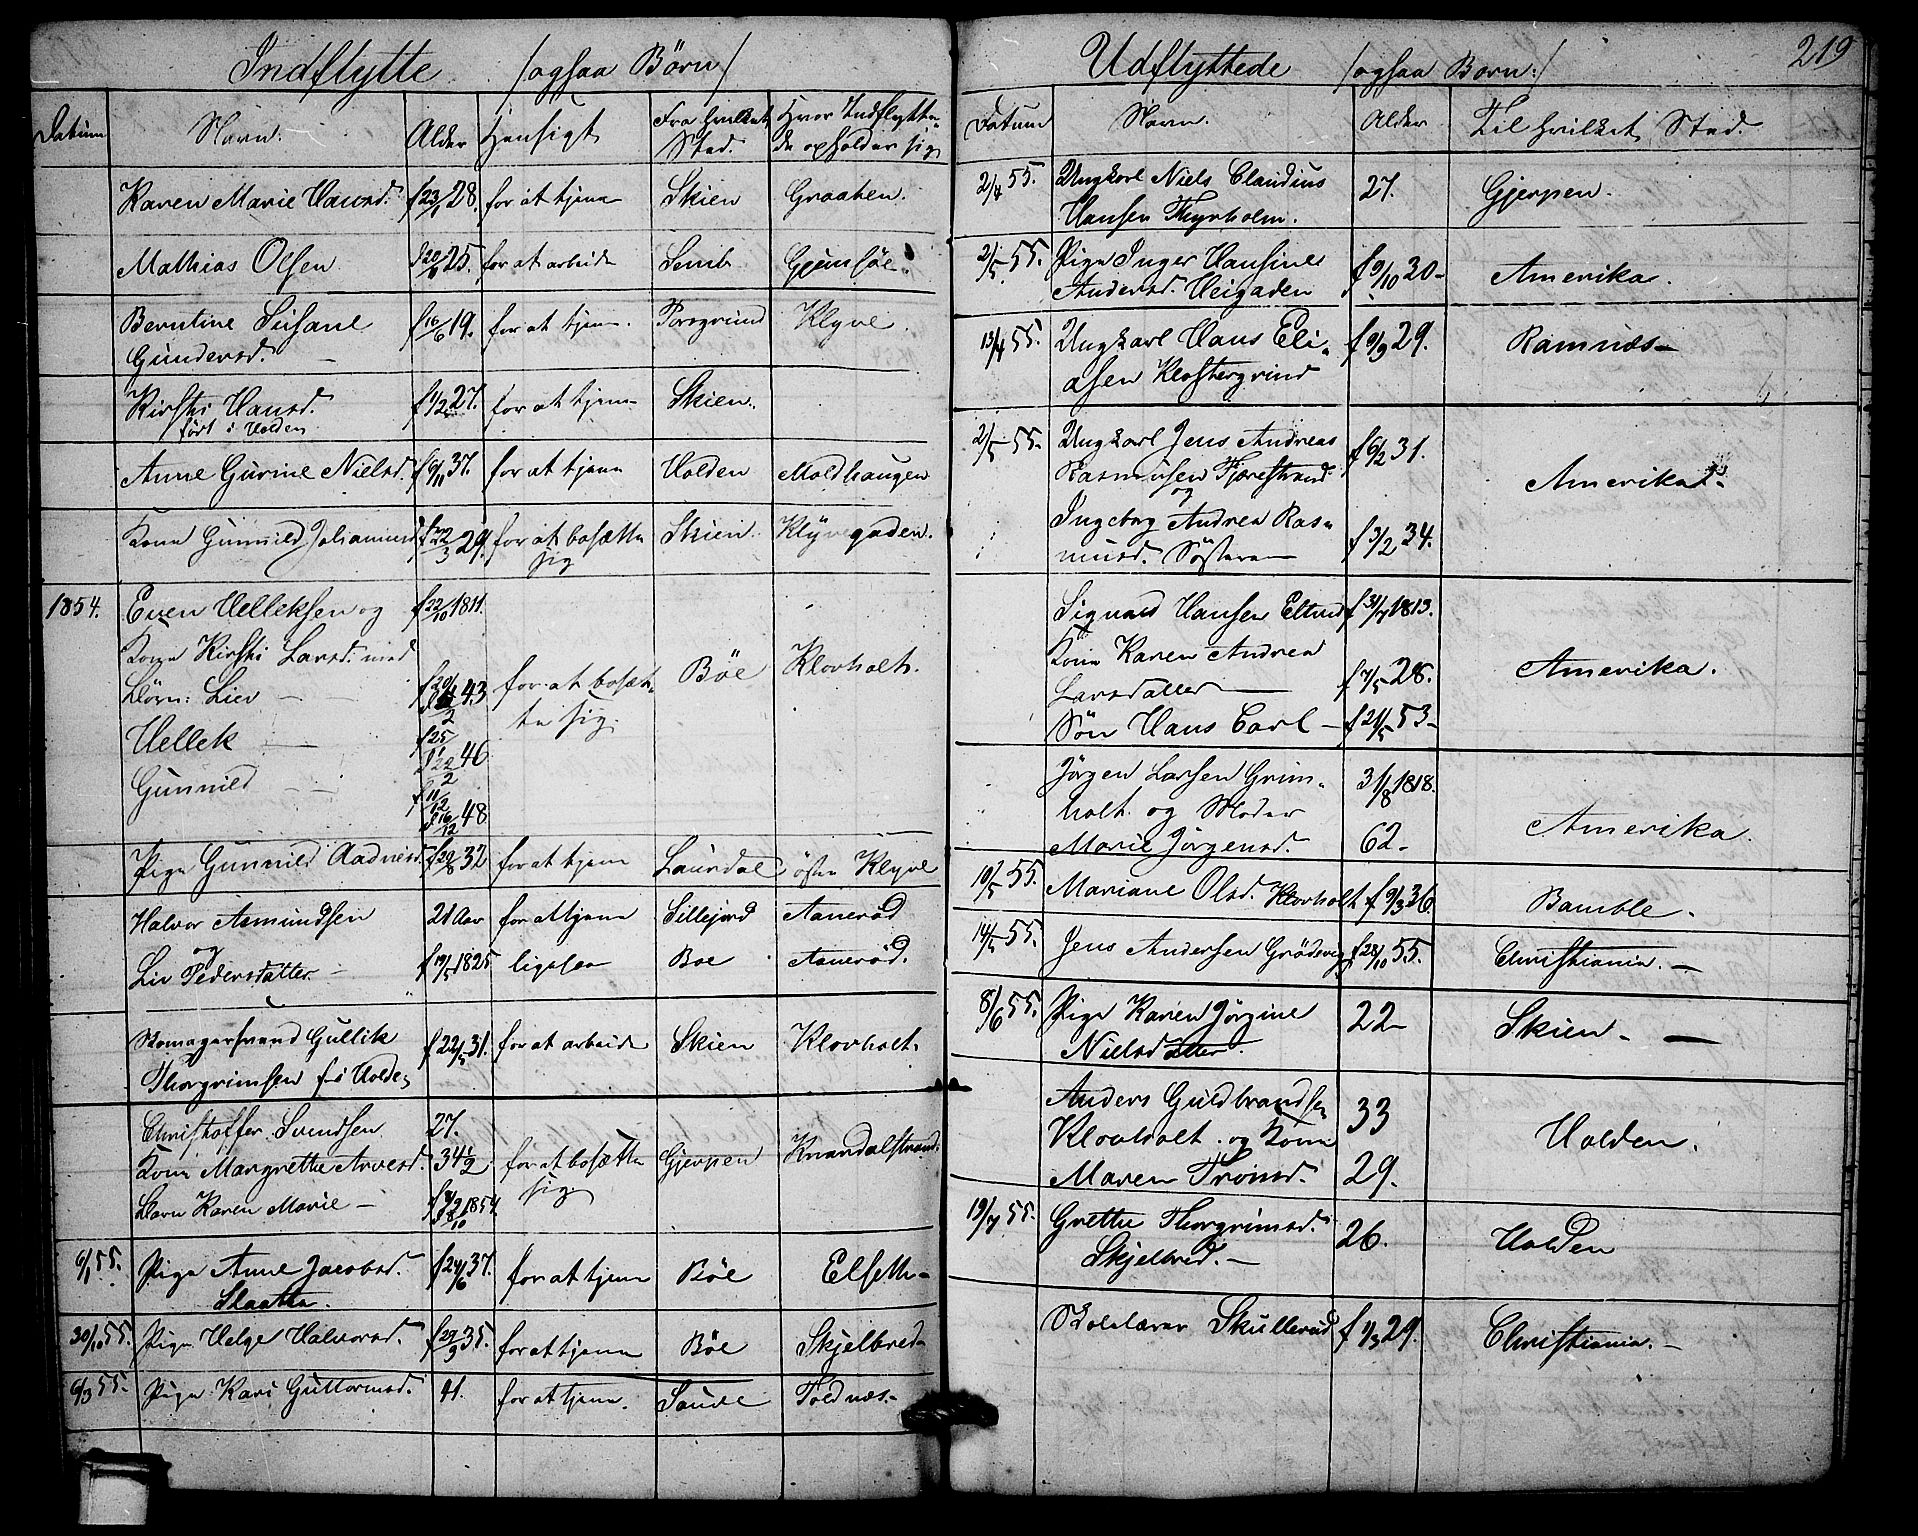 Indflytte /ogsaa Börn/
Datum Navn: Alder Hensigt Fra hvilket Sted. Hvor Indflyttende opholder sig
Karen Marie Hansd. f 23/1 28. for at tjene Skien Graaten.
Mathias Olsen 25. for at arbeide Gjemsöe
Berntine Susane f 16/6 19. for at tjene Porsgrund Klyve.
Gundersd. —
Kirsti Hansd. f 1/2 27. for at tjene Skien.
födt i Holden
Anne Gurine Nielsd. f 6/11 37. for at tjene Holden Moldhaugen
Kone Gunnild Johannesd f 22/3 29. for at bosætte sig Skien. Klyvegaden.
1854. Even Helleksen og f 22/10 1811.
Kone Kirsti Larsd. med
Börn: Liev — 43 for at bosætte sig. Böe Klovholt.
Hellek — 46
Gunnild — 48
Pige Gunnild Aadnesd. f 29/8 32 for at tjene Laurdal östre Klyve
Halvor Asmundsen 21 Aar for at tjene Sillejord Aanerød
og
Liv Pedersdatter — f 19/5 1825 ligesaa Boe Aanerød.
Skomagersvend Gullik f 22/5 31. for at arbeide Skien Klovholt.
Thorgrimsen f. i Holden
Christoffer Svendsen 27.
Kone Margrethe Arvesd. 34 1/2 for at bosætte sig Gjerpen Knardalstrand.
Barn Karen Marie — 1854
6/1 55. Pige Anne Jacobsd. f 24/6 37. for at tjene Böe Elseth
Slaatta.
30/10 55. Pige Helge Halvorsd. f 29/9 35. for at tjene Böe Skjelbred
6/3 55. Pige Kari Guttormsd. 41. for at tjene. Saude Toldnæs
Udflyttede /ogsaa Börn:/ 219
Datum Navn. Alder Til hvilket Sted.
2/4 55. Ungkarl Niels Claudius 27. Gjerpen.
Hansen Thyrholm.
2/5 55. Pige Inger Hansine f 9/10 30 Amerika.
Andersd. Heigaden
13/4 55. Ungkarl Hans Eli= f 9/9 29. Ramnæs
asen Klostergrind
2/5 55. Ungkarl Jens Andreas f 6/2 31.
Rasmusen Fjærestrand
og Amerika
Ingeborg Andrea Ras=
musd. Søster f 3/2 34.
Sigvard Hansen Eltvad f 31/7 1813.
Kone Karen Andrea Amerika.
Larsdatter — f 7/5 28.
Sön Hans Carl — f 21/5 53
Jörgen Larsen Grim= 31/8 1818.
holt. og Moder Amerika.
Marie Jörgensd. 62
10/5 55. Mariane Olsd. Klovholt f 9/3 26. Bamble.
14/5 55. Jens Andersen Grödevig f 28/10 55. Christiania. —
8/6 55. Pige Karen Jörgine 22 Skien. —
Nielsdatter.
Anders Guldbrandsen 33
Klovholt. og Kone Holden.
Maren Trönsd. 29.
19/7 55. Grethe Thorgrimsd. 26. Holden
Skjelbred. —
Skolelærer Skullerud f 1/3 29. Christiania. —